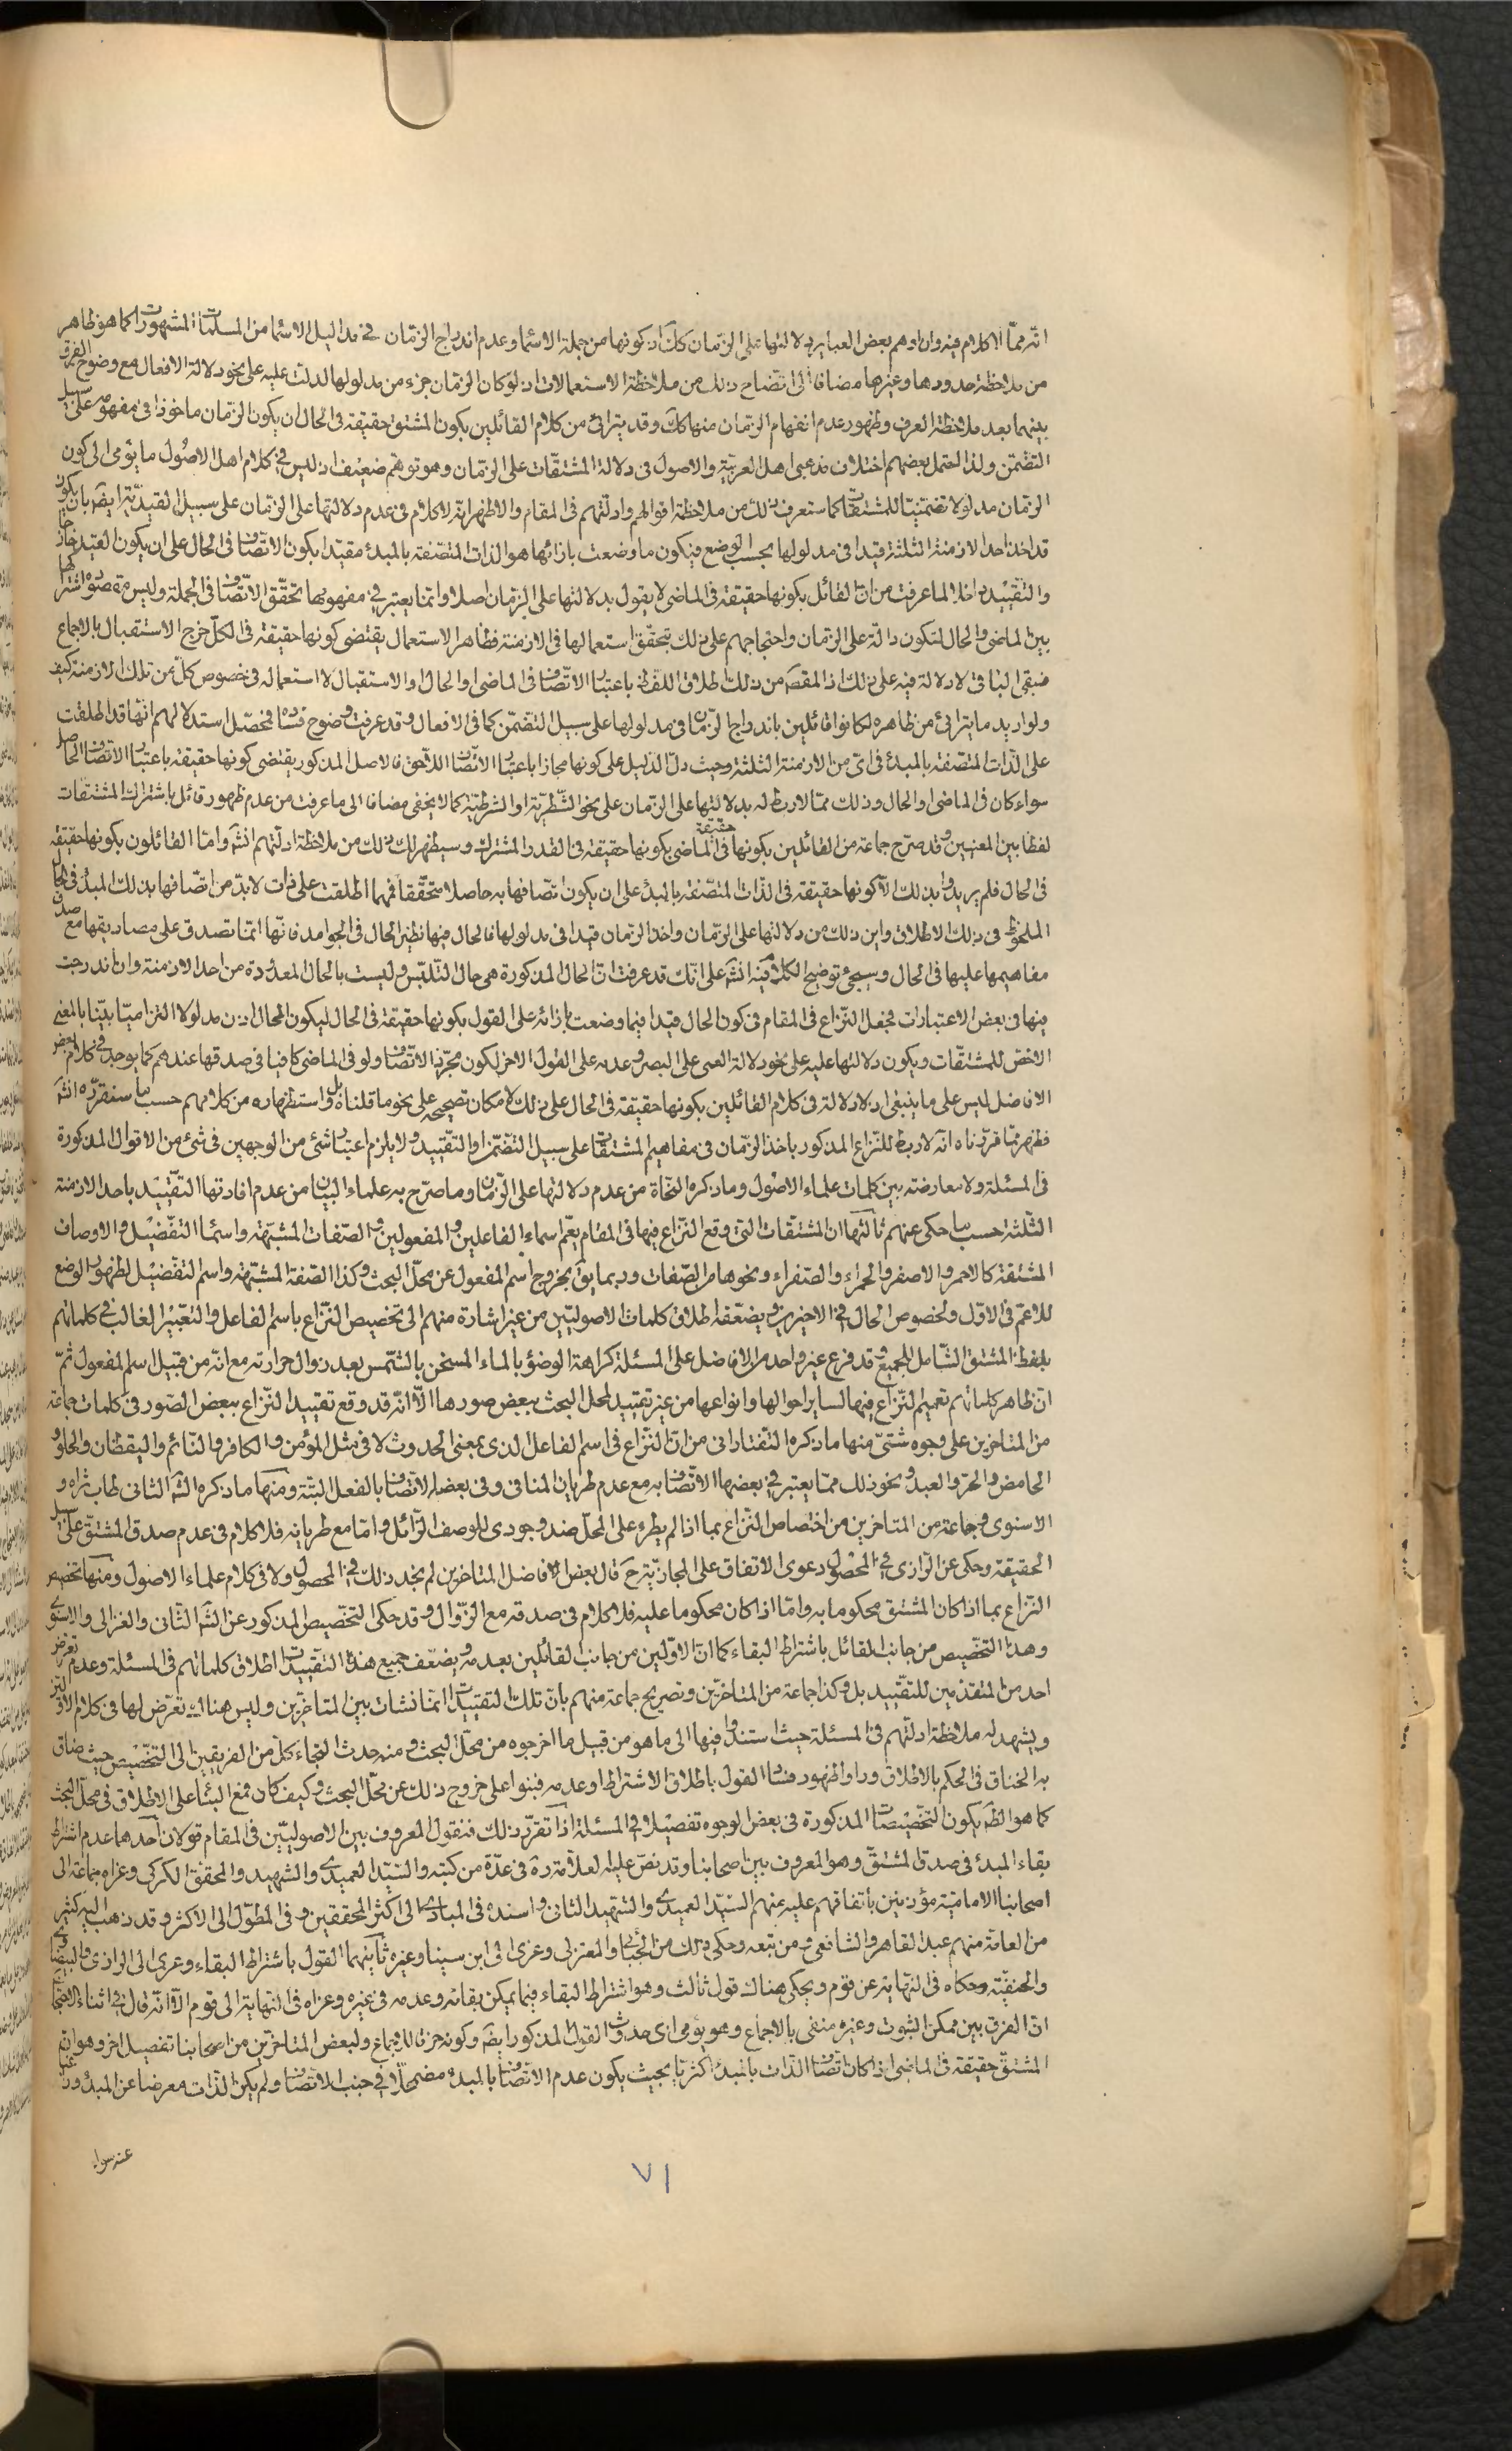 انه مما لا كلام فيه وان اوهم بعض العباير دلالتها على الزمان كك اذ كونها من جملة الاسماء وعدم اندراج الزمان في مداليل الاسماء من المسلمات المشهورات كما هو ظاهر
من ملاحظة حدودها وغيرها مضافا الى اتضاح ذلك من ملاحظة الاستعمالات اذ لو كان الزمان جزء من مدلولها لدلت عليه على نحو دلالة الافعال مع وضوح الفرق
بينهما بعد ملاحظة العرف وظهور عدم انفهام الزمان منها كك وقد يترائى من كلام القائلين بكون المشتق حقيقة في الحال ان يكون الزمان ماخوذا في مفهومه على سبيل
التضمن ولذا احتمل بعضهم اختلاف مذهبى اهل العربية والاصول في دلالة المشتقات على الزمان وهو توهم ضعيف اذ ليس في كلام اهل الاصول ما يومى الى كون
الزمان مدلولا تضمنيا للمشتقات كما ستعرف ذلك من ملاحظة اقوالهم وادلتهم في المقام والاظهر انه لا كلام في عدم دلالتها على الزمان على سبيل القيدية ايضا بان يكون
قد اخذ احد الازمنة الثلثة قيدا في مدلولها بحسب الوضع فيكون ما وضعت بازائها هو الذات المتصفة بالمبدء مقيدا بكون الاتصاف في الحال على ان يكون القيد خارجا
والتقييد داخلا لما عرفت من ان القائل بكونها حقيقة في الماضى لا يقول بدلالتها على الزمان اصلا وانما يعتبر في مفهومها تحقق الاتصاف في الجملة وليس مقصوده اشتراكها
بين الماضى والحال لتكون دالة على الزمان واحتجاجهم على ذلك بتحقق استعمالها في الازمنة فظاهر الاستعمال يقتضى كونها حقيقة في الكل خرج الاستقبال بالاجماع
فبقى الباقى لا دلالة فيه على ذلك اذ المقصد من ذلك اطلاق اللفظ باعتبار الاتصاف في الماضى او الحال او الاستقبال لا استعماله في خصوص كل من تلك الازمنة كيف
ولو اريد ما يترائى من ظاهره لكانوا قائلين باندراج الزمان في مدلولها على سبيل التضمن كما في الافعال وقد عرفت وضوح فساده فمحصل استدلالهم انها قد اطلقت
على الذات المتصفة بالمبدء في اى من الازمنة الثلثة وحيث دل الدليل على كونها مجازا باعتبار الاتصاف اللاحق فالاصل المذكور يقتضى كونها حقيقة باعتبار الاتصاف الحاصل
سواء كان في الماضى او الحال وذلك مما لا ربط له بدلالتها على الزمان على نحو الشطرية او الشرطية كما لا يخفى مضافا الى ما عرفت من عدم ظهور قائل باشتراك المشتقات
لفظا بين المعنيين وقد صرح جماعة من القائلين بكونها حقيقة في الماضى بكونها حقيقة في القدر المشترك وسيظهر لك ذلك من ملاحظة ادلتهم انشه واما القائلون بكونها حقيقة
في الحال فلم يريدوا بذلك الا كونها حقيقة في الذات المتصفة بالمبدء على ان يكون اتصافها به حاصلا متحققا فمهما اطلقت على ذات لا بد من اتصافها بذلك المبدء في الحال
الملحوظ في ذلك الاطلاق واين ذلك من دلالتها على الزمان واخذ الزمان قيدا في مدلولها فالحال فيها نظير الحال في الجوامد فانها انما تصدق على مصاديقها مع صدق
مفاهيمها عليها في الحال وسيجئ توضيح الكلام فيه انشه على انك قد عرفت ان الحال المذكورة هى حال التلبس وليست بالحال المعدودة من احد الازمنة وان اندرجت
فيها في بعض الاعتبارات فجعل النزاع في المقام في كون الحال قيدا فيما وضعت بازائه على القول بكونها حقيقة في الحال ليكون الحال اذن مدلولا التزاميا بينا بالمعنى
الاخص للمشتقات ويكون دلالتها عليه على نحو دلالة العمى على البصر وعدمه على القول الاخر لكون مجرد الاتصاف ولو في الماضى كافيا في صدقها عندهم كما يوجد في كلام بعض
الافاضل ليس على ما ينبغى اذ لا دلالة في كلام القائلين بكونها حقيقة في الحال على ذلك لامكان تصحيحه على نحو ما قلناه بل واستظهاره من كلامهم حسب ما سنقرره انشه
فظهر مما قررناه انه لا ربط للنزاع المذكور باخذ الزمان في مفاهيم المشتقات على سبيل التضمن او التقييد ولا يلزم اعتبار شئ من الوجهين في شئ من الاقوال المذكورة
في المسئلة ولا معارضة بين كلمات علماء الاصول وما ذكره النحاة من عدم دلالتها على الزمان وما صرح به علماء البيان من عدم افادتها التقييد باحد الازمنة
الثلثة حسب ما حكى عنهم ثالثها ان المشتقات التى وقع النزاع فيها في المقام يعم اسماء الفاعلين والمفعولين والصفات المشبهة واسماء التفضيل والاوصاف
المشتقة كالاحمر والاصفر والحمراء والصفراء ونحوها من الصفات وربما يق بخروج اسم المفعول عن محل البحث وكذا الصفة المشبهة واسم التفضيل لظهور الوضع
للاعم في الاول ولخصوص الحال في الاخيرين ويضعفه اطلاق كلمات الاصوليين من غير اشارة منهم الى تخصيص النزاع باسم الفاعل والتعبير الغالب في كلماتهم
بلفظ المشتق الشامل للجميع وقد فرع غير واحد من الافاضل على المسئلة كراهة الوضوء بالماء المسخن بالشمس بعد زوال حرارته مع انه من قبيل اسم المفعول ثم
ان ظاهر كلماتهم تعميم النزاع فيها لساير احوالها وانواعها من غير تقييد لمحل البحث ببعض صورها الا انه قد وقع تقييد النزاع ببعض الصور في كلمات جماعة
من المتاخرين على وجوه شتى منها ما ذكره التفتازانى من ان النزاع في اسم الفاعل الذى بمعنى الحدوث لا في مثل المؤمن والكافر والنائم واليقظان والحلو و
الحامض والحر والعبد ونحو ذلك مما يعتبر في بعضها الاتصاف به مع عدم طريان المنافى وفى بعضه الاتصاف بالفعل البتة ومنها ما ذكره الشه الثانى طاب ثراه و
الاسنوى وجماعة من المتاخرين من اختصاص النزاع بما اذا لم يطرء على المحل ضد وجودى للوصف الزائل واما مع طريانه فلا كلام في عدم صدق المشتق على سبيل
الحقيقة وحكى عن الرازى في المحصول دعوى الاتفاق على المجازية ح قال بعض الافاضل المتاخرين لم نجد ذلك في المحصول ولا في كلام علماء الاصول ومنها تخصيص
النزاع بما اذا كان المشتق محكوما به واما اذا كان محكوما عليه فلا كلام في صدقه مع الزوال وقد حكى التخصيص المذكور عن الشه الثانى والغزالى والاسنوى
وهذا التخصيص من جانب القائل باشتراط البقاء كما ان الاولين من جانب القائلين بعدمه ويضعف جميع هذه التقييدات اطلاق كلماتهم في المسئلة وعدم تعرض
احد من المتقدمين للتقييد بل وكذا جماعة من المتاخرين وتصريح جماعة منهم بان تلك التقييدات انما نشات بين المتاخرين وليس هناك تعرض لها في كلام
ويشهد له ملاحظة ادلتهم في المسئلة حيث استندوا فيها الى ما هو من قبيل ما اخرجوه من محل البحث ومنه حدث التجاء كل من الفريقين الى التخصيص حيث ضاق
به الخناق في الحكم بالاطلاق وراوا ظهور فساد القول باطلاق الاشتراط او عدمه فبنوا على خروج ذلك عن محل البحث وكيف كان فمع البناء على الاطلاق في محل البحث
كما هو الظه يكون التخصيصات المذكورة في بعض الوجوه تفصيلا في المسئلة اذا تقرر ذلك فنقول المعروف بين الاصوليين في المقام قولان احدهما عدم اشتراط
بقاء المبدء في صدق المشتق وهو المعروف بين اصحابنا وقد نص عليه العلامة ره في عدة من كتبه والسيد العميدى والشهيد والمحقق الكركى وعزاه جماعة الى
اصحابنا الامامية مؤذنين باتفاقهم عليه منهم السيد العميدى والشهيد الثانى واسنده في المبادى الى اكثر المحققين وفى المطول الى الاكثر وقد ذهب اليه كثير
من العامة منهم عبد القاهر والشافعى ومن تبعه وحكى ذلك من الجبائى والمعتزلى وعزى الى ابن سينا وغيره ثانيهما القول باشتراط البقاء وعزى الى الرازى والبيضاوى
والحنفية وحكاه في النهاية عن قوم ويحكى هناك قول ثالث وهو اشتراط البقاء فيما يمكن بقائه وعدمه في غيره وعزاه في النهاية الى قوم الا انه قال في اثناء الاحتجاج
ان الفرق بين ممكن الثبوت وغيره منفى بالاجماع وهو يومى الى حدوث القول المذكور ايضا وكونه خرقا للاجماع ولبعض المتاخرين من اصحابنا تفصيل اخر وهو ان
المشتق حقيقة في الماضى اذا كان اتصاف الذات بالمبدء اكثريا بحيث يكون عدم الاتصاف بالمبدء مضمحلا في جنب الاتصاف ولم يكن الذات معرضا عن المبدء
عنه سواء
٧١